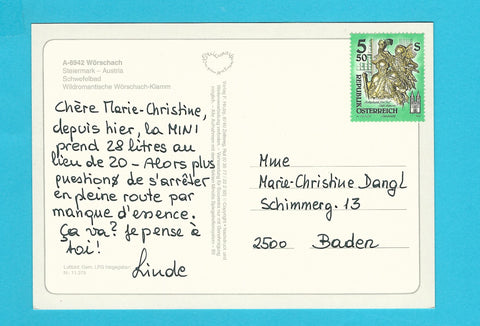 A-8942 Wörschach
Steiermark – Austria
Schwefelbad
Wildromantische Wörschach-Klamm
Chère Marie-Christine,
depuis hier, la MINI
prend 28 litres au
lieu de 20 - Alors plus
questions de s'arrêter
en pleine route par
manque d'essence.
Ça va? Je pense à
toi!
Linde
5 50 S
REPUBLIK
ÖSTERREICH
Mme
Marie-Christine Dangl
Schimmerg. 13
2500 Baden